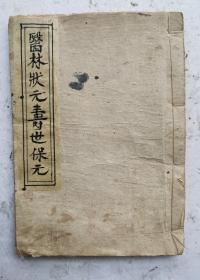 醫林狀元壽世保元